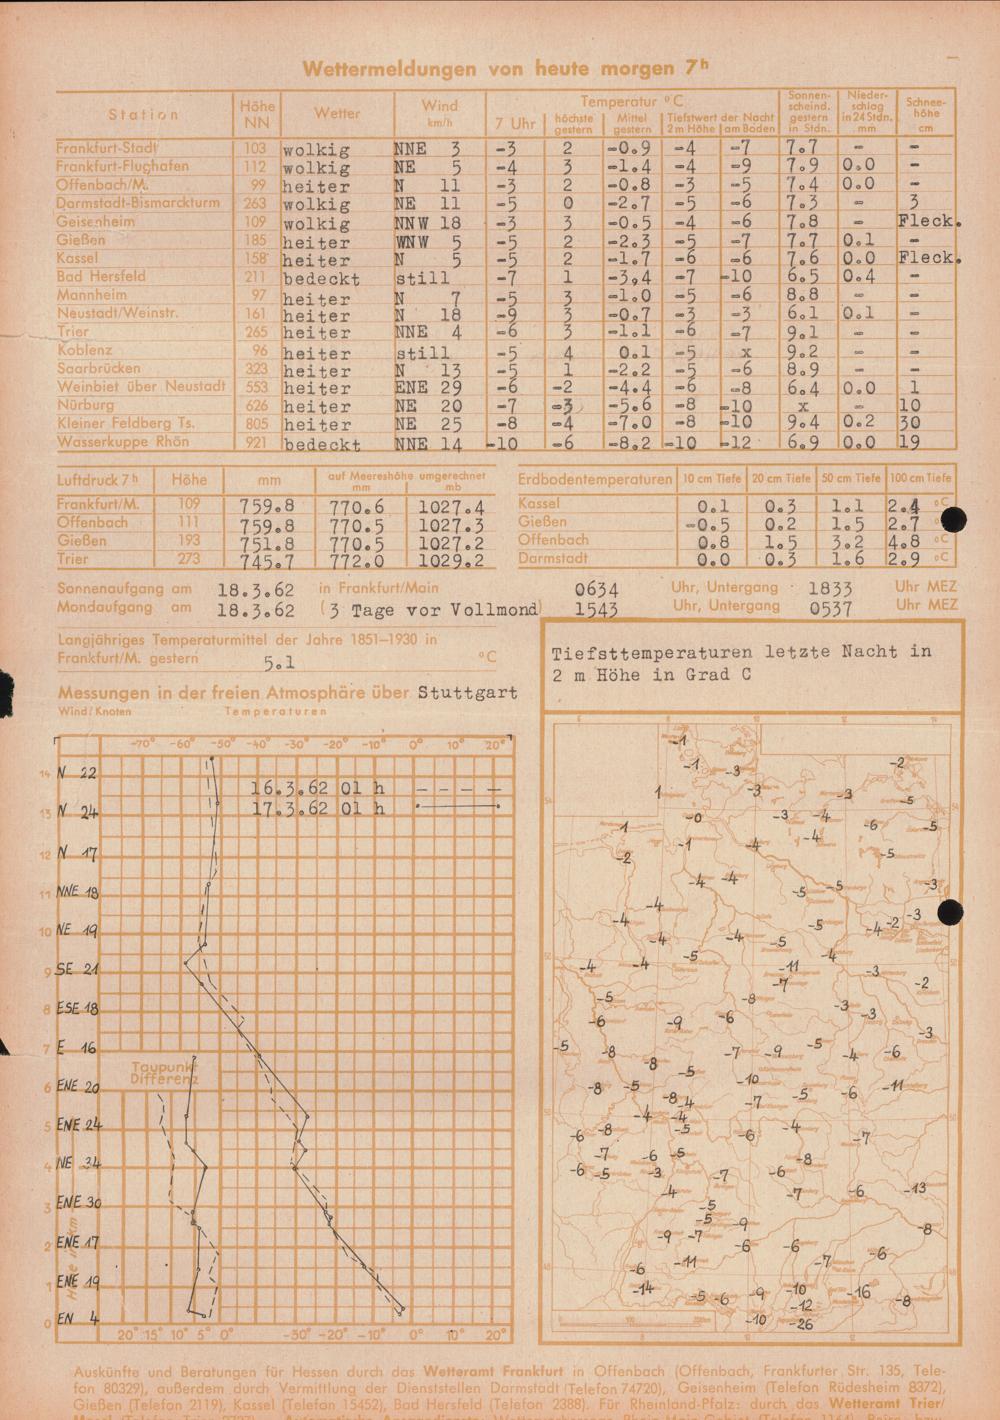 Wettermeldungen von heute morgen 7ʰ
Station Höhe NN Wetter Wind km/h Temperatur °C 7 Uhr höchste gestern Mittel gestern Tiefstwert der Nacht 2 m Höhe am Boden Sonnen-scheind. gestern in Stdn. Nieder-schlag in 24 Stdn. mm Schnee-höhe cm
Frankfurt-Stadt 103 wolkig NNE 3 -3 2 -0.9 -4 -7 7.7 - -
Frankfurt-Flughafen 112 wolkig NE 5 -4 3 -1.4 -4 -9 7.9 0.0 -
Offenbach/M. 99 heiter N 11 -3 2 -0.8 -3 -5 7.4 0.0 -
Darmstadt-Bismarckturm 263 wolkig NE 11 -5 0 -2.7 -5 -6 7.3 - 3
Geisenheim 109 wolkig NNW 18 -3 3 -0.5 -4 -6 7.8 - Fleck.
Gießen 185 heiter WNW 5 -5 2 -2.3 -5 -7 7.7 0.1 -
Kassel 158 heiter N 5 -5 2 -1.7 -6 -6 7.6 0.0 Fleck.
Bad Hersfeld 211 bedeckt still -7 1 -3,4 -7 -10 6.5 0.4 -
Mannheim 97 heiter N 7 -5 3 -1.0 -5 -6 8.8 - -
Neustadt/Weinstr. 161 heiter N 18 -9 3 -0.7 -3 -3 6.1 0.1 -
Trier 265 heiter NNE 4 -6 3 -1.1 -6 -7 9.1 - -
Koblenz 96 heiter still -5 4 0.1 -5 x 9.2 - -
Saarbrücken 323 heiter N 13 -5 1 -2.2 -5 -6 8.9 - -
Weinbiet über Neustadt 553 heiter ENE 29 -6 -2 -4.4 -6 -8 6.4 0.0 1
Nürburg 626 heiter NE 20 -7 -3 -5.6 -8 -10 x - 10
Kleiner Feldberg Ts. 805 heiter NE 25 -8 -4 -7.0 -8 -10 9.4 0.2 30
Wasserkuppe Rhön 921 bedeckt NNE 14 -10 -6 -8.2 -10 -12 6.9 0.0 19
Luftdruck 7ʰ Höhe mm auf Meereshöhe umgerechnet mm mb
Frankfurt/M. 109 759.8 770.6 1027.4
Offenbach 111 759.8 770.5 1027.3
Gießen 193 751.8 770.5 1027.2
Trier 273 745.7 772.0 1029.2
Erdbodentemperaturen 10 cm Tiefe 20 cm Tiefe 50 cm Tiefe 100 cm Tiefe
Kassel 0.1 0.3 1.1 2.4 °C
Gießen -0.5 0.2 1.5 2.7 °C
Offenbach 0.8 1.5 3.2 4.8 °C
Darmstadt 0.0 0.3 1.6 2.9 °C
Sonnenaufgang am 18.3.62 in Frankfurt/Main 0634 Uhr, Untergang 1833 Uhr MEZ
Mondaufgang am 18.3.62 (3 Tage vor Vollmond) 1543 Uhr, Untergang 0537 Uhr MEZ
Langjähriges Temperaturmittel der Jahre 1851–1930 in
Frankfurt/M. gestern 5.1 °C
Messungen in der freien Atmosphäre über Stuttgart
Wind/Knoten Temperaturen
-70° -60° -50° -40° -30° -20° -10° 0° 10° 20°
14 N 22
16.3.62 01 h
17.3.62 01 h
13 N 24
12 N 17
11 NNE 18
10 NE 19
9 SE 21
8 ESE 18
7 E 16
Taupunkt
Differenz
6 ENE 20
5 ENE 24
4 NE 34
3 ENE 30
2 ENE 17
1 ENE 19
0 EN 4
Höhe in km
20° 15° 10° 5° 0° -30° -20° -10° 0° 10° 20°
Tiefsttemperaturen letzte Nacht in
2 m Höhe in Grad C
-1
-1 -3 -2
1 -3 -3 -5
-0 -3 -4
1 -4 -6 -5
-2 -1 -4 -5
-4 -4 -5 -5 -3
-4 -4 -5 -4 -2 -3
-4 -4 -5 -4
-4 -4 -5 -11 -3
-7 -2
-5 -8 -3 -3
-6 -9 -6 -3
-5 -8 -8 -7 -9 -5 -4
-8 -5 -5 -10 -5 -6 -11
-8 -4 -7
-4 -4
-6 -8 -5 -6 -4 -7
-7 -6 -5 -8
-6 -5 -3 -7 -6
-4 -7 -6 -13
-5
-5 -9 -8
-9 -7 -6 -6 -6
-11 -7
-6
-14 -5 -6 -9 -10 -16 -8
-12
-10 -26
Auskünfte und Beratungen für Hessen durch das Wetteramt Frankfurt in Offenbach (Offenbach, Frankfurter Str. 135, Tele-
fon 80329), außerdem durch Vermittlung der Dienststellen Darmstadt (Telefon 74720), Geisenheim (Telefon Rüdesheim 8372),
Gießen (Telefon 2119), Kassel (Telefon 15452), Bad Hersfeld (Telefon 2388). Für Rheinland-Pfalz: durch das Wetteramt Trier/